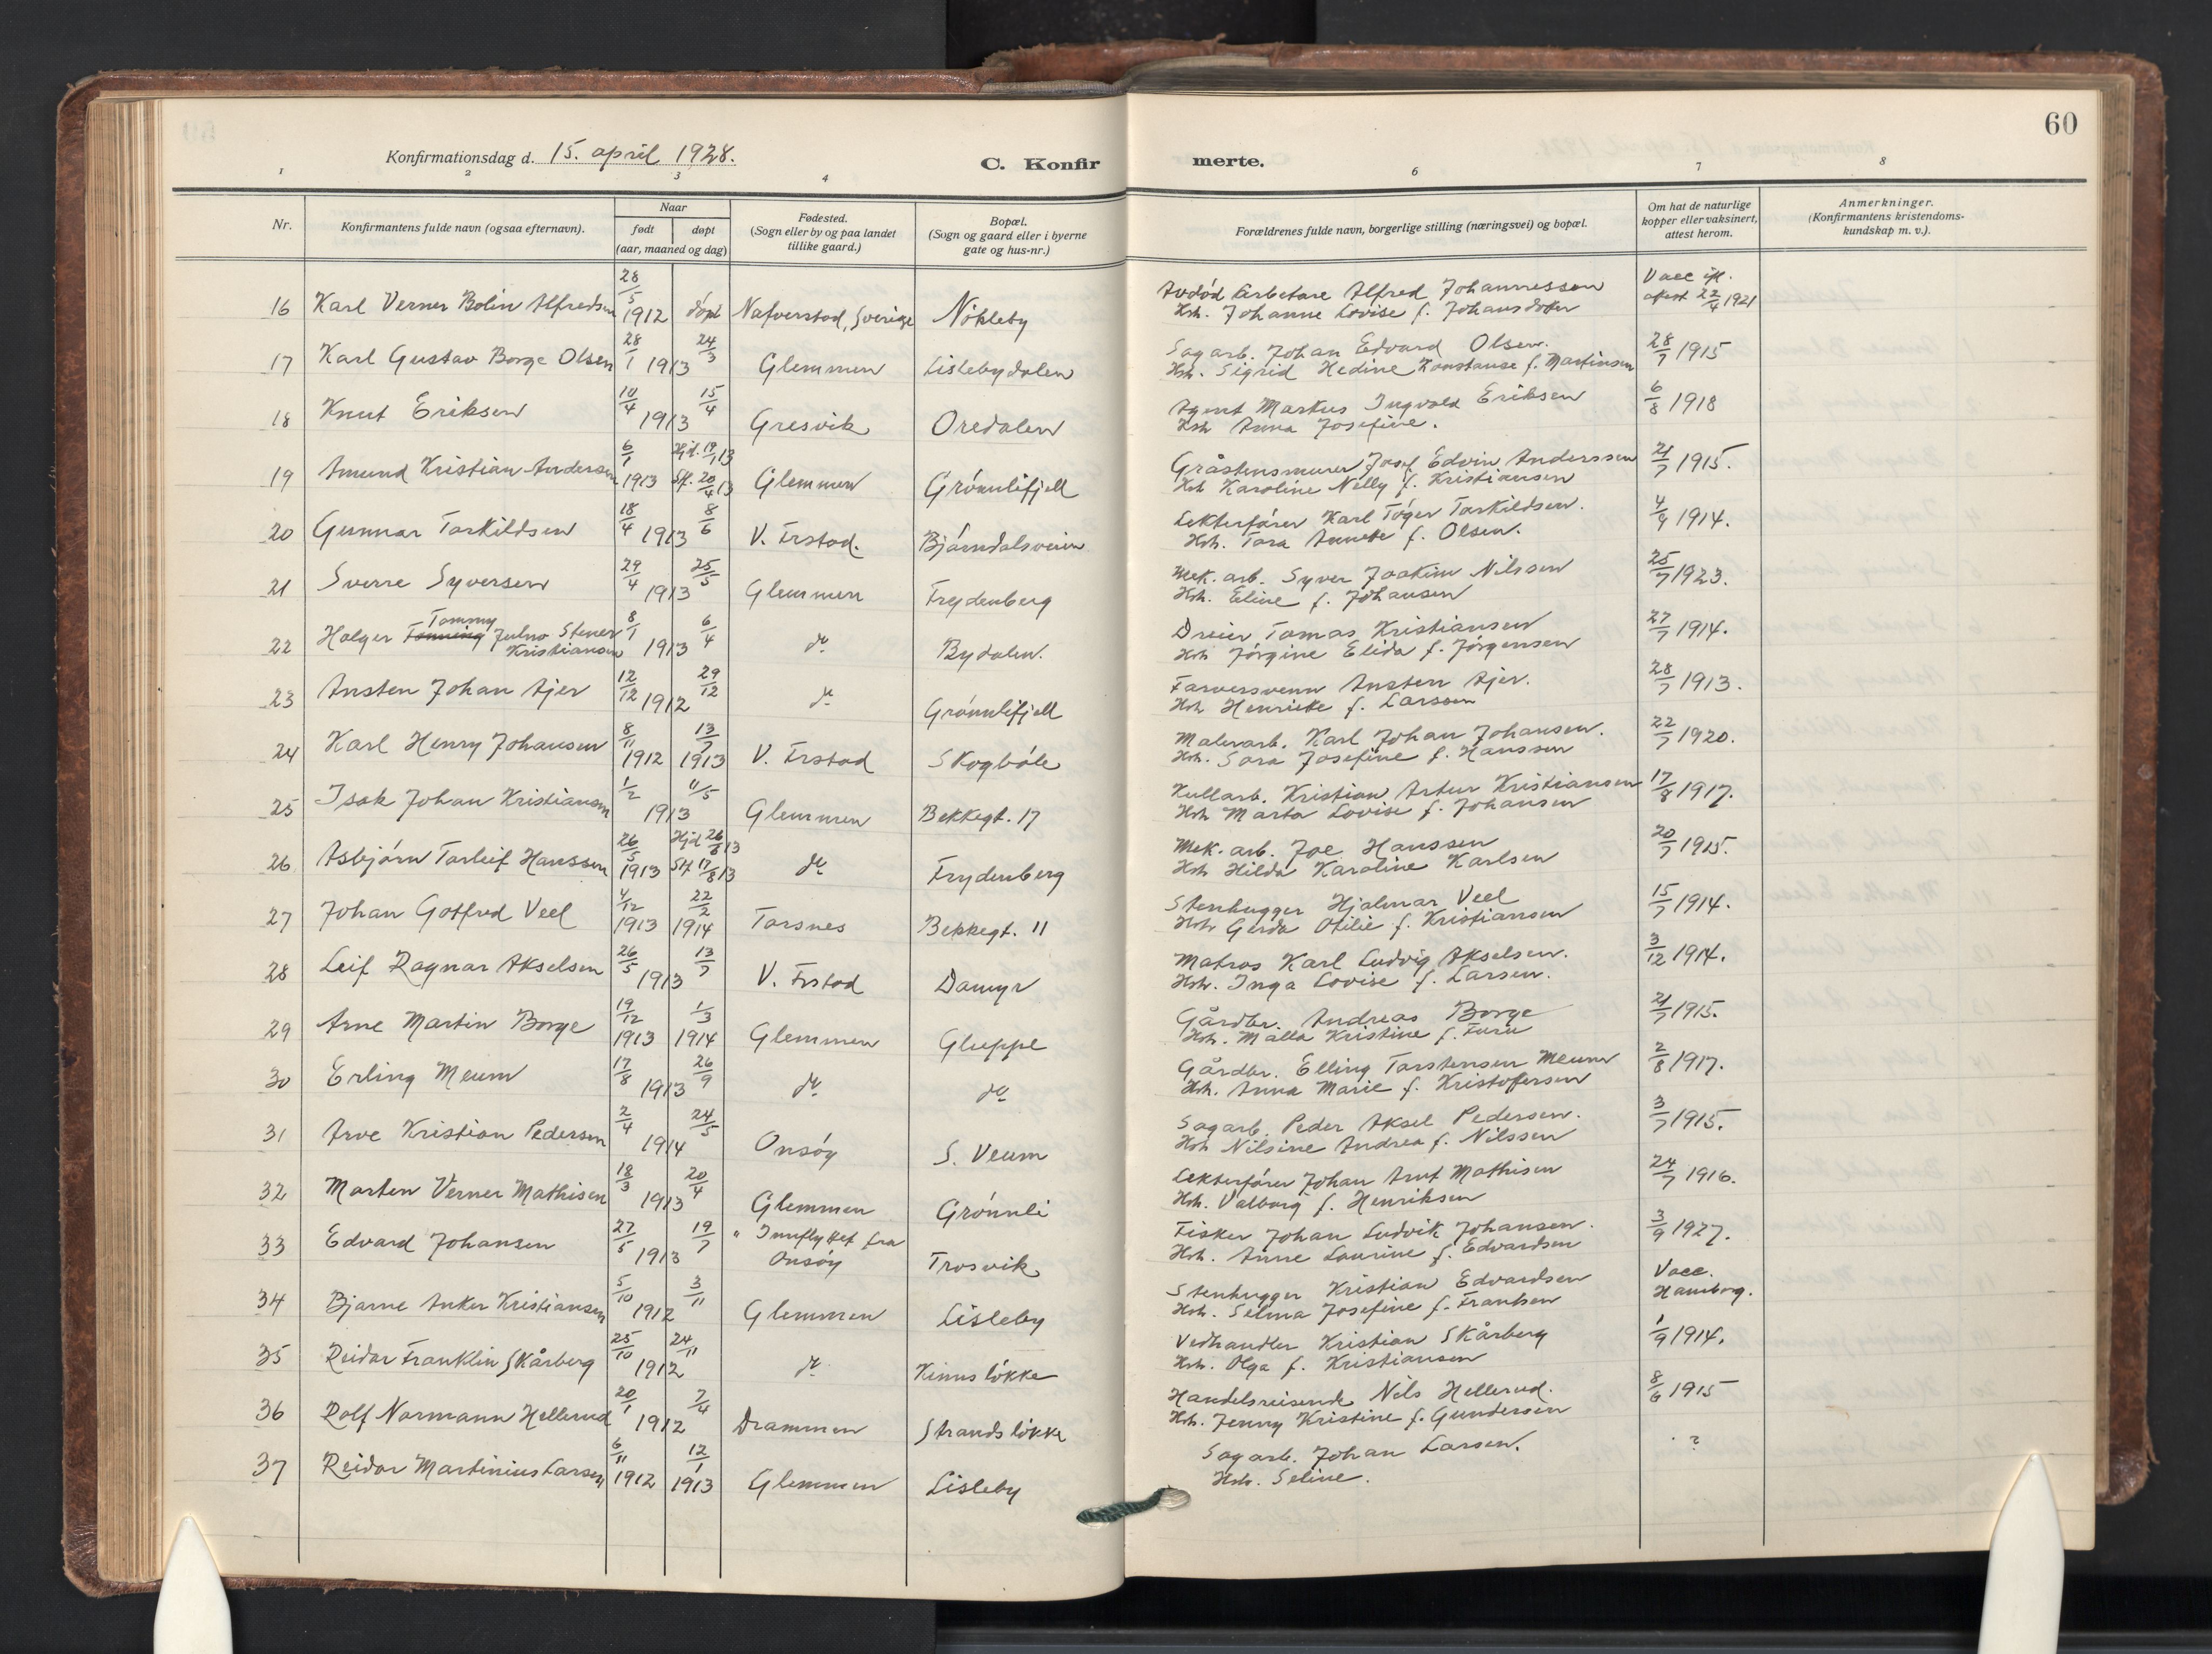 60
Konfirmationsdag d. 15. april 1928. C. Konfirmerte.
1 2 3 4 6 7 8
Nr. Konfirmantens fulde navn (ogsaa efternavn). Naar født døpt (aar, maaned og dag) Fødested. (Sogn eller by og paa landet tillike gaard.) Bopæl. (Sogn og gaard eller i byerne gate og hus-nr.) Forældrenes fulde navn, borgerlige stilling (næringsvei) og bopæl. Om hat de naturlige kopper eller vaksinert, attest herom. Anmerkninger. (Konfirmantens kristendomskundskap m. v.).
16 Karl Verner Bolin Alfredsen 28/5 1912 døpt Nafverstad, Sverige Nökleby Avdød Arbetare Alfred Johannesson Vacc ifl.
Hst. Johanne Lovise f. Johansdotter attest 22/4 1921
17 Karl Gustav Borge Olsen 28/1 24/3 1913 Glemmen Lislebydalen Sagarb. Johan Edvard Olsen. 28/7 1915
Hst. Sigrid Hedine Konstanse f. Martinsen
18 Knut Eriksen 10/4 15/4 1913 Gresvik Oredalen Agent Markus Ingvald Eriksen 6/8 1918
Hst Anna Josefine.
19 Amund Kristian Andersen 6/1 1913 Hjd. 19/1 13 Stf. 20/4 13 Glemmen Grönnlifjell Gråstensmurer Josef Edvin Anderssen 21/7 1915.
Hst Karoline Nelly f. Kristiansen
20 Gunnar Torkildsen 18/4 8/6 1913 V. Frstad. Björndalsveien Lekterförer Karl Töger Torkildsen. 4/9 1914.
Hst. Tora Annette f. Olsen.
21 Sverre Syversen 29/4 25/5 1913 Glemmen Frydenberg Mek. arb. Syver Joakim Nilssen 25/7 1923.
Hst. Eline f. Johansen
22 Holger Tommy Julno Stener Kristiansen 8/1 6/4 1913 do Bydalen. Dreier Tomas Kristiansen 27/7 1914.
Hst Jörgine Elida f. Jörgensen
23 Ansten Johan Ajer 12/12 29/12 1912 do Grönnlifjell Farversvenn Ansten Ajer. 28/7 1913.
Hst Henriette f. Larssen
24 Karl Henry Johansen 8/11 1912 13/7 1913 V. Frstad Skogböle Malerarb. Karl Johan Johansen. 22/7 1920.
Hst. Sara Josefine f. Hanssen
25 Isak Johan Kristiansen 1/2 11/5 1913 Glemmen Bekkegt. 17 Kullarb. Kristian Artur Kristiansen 17/8 1917.
Hst Marta Lovise f. Johansen
26 Asbjörn Torleif Hanssen 26/5 1913 Hjd 26/6 13 Stf 17/8 13 do Frydenberg Mek. arb. Joe Hanssen 20/7 1915.
Hst Hilda Karoline Karlsen
27 Johan Gotfred Veel 4/12 1913 22/2 1914 Torsnes Bekkegt. 11 Stenhugger Hjalmar Veel 15/7 1914.
Hst Gerda Otilie f. Kristiansen
28 Leif Ragnar Akselsen 26/5 13/7 1913 V. Frstad Damyr Matros Karl Ludvig Akselsen. 3/12 1914.
Hst. Inga Lovise f. Larsen.
29 Arne Martin Borge 19/12 1913 1/3 1914 Glemmen Gluppe Gårdbr. Andreas Borge 21/7 1915.
Hst. Malla Kristine f. Furu
30 Erling Meum 17/8 26/9 1913 do do Gårdbr. Elling Torstensen Meum 2/8 1917.
Hst. Anna Marie f. Kristofersen
31 Arve Kristian Pedersen 2/4 24/5 1914 Onsöy S. Veum Sagarb. Peder Aksel Pedersen. 3/7 1915.
Hst Nilsine Andrea f. Nilssen
32 Morten Verner Mathisen 18/3 20/4 1913 Glemmen Grönnli Lekterförer Johan Arnt Mathisen 24/7 1916.
Hst. Valborg f. Henriksen
33 Edvard Johansen 27/5 19/7 1913 " Innflyttet fra Onsöy Trosvik Fisker Johan Ludvik Johansen. 3/9 1927.
Hst. Anne Laurine f. Edvardsen
34 Bjarne Anker Kristiansen 5/10 3/11 1912 Glemmen Lisleby Stenhugger Kristian Edvardsen Vacc.
Hst. Selma Josefine f. Frantsen Hamborg.
35 Reidar Franklin Skårberg 25/10 24/11 1912 do Kinnslökka Vedhandler Kristian Skårberg 1/9 1914.
Hst. Olga f. Kristiansen
36 Rolf Normann Hellerud 20/1 7/4 1912 Drammen Strandslökka Handelsreisende Nils Hellerud. 8/6 1915
Hst. Jenny Kristine f. Gundersen
37 Reidar Martinius Larsen 6/11 1912 12/1 1913 Glemmen Lisleby Sagarb. Johan Larsen. ?
Hst. Seline.